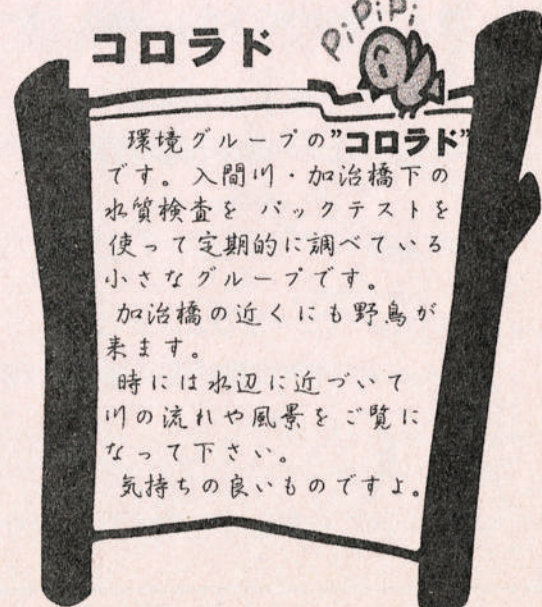 コロラド
PiPiPi
環境グループの"コロラド"
です。入間川・加治橋下の
水質検査を パックテストを
使って定期的に調べている
小さなグループです。
加治橋の近くにも野鳥が
来ます。
時には水辺に近づいて
川の流れや風景をご覧に
なって下さい。
気持ちの良いものですよ。